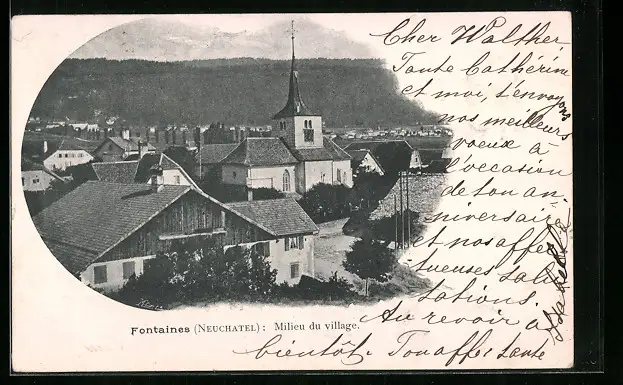 Cher Walther,
Tante Cathérine
et moi, t'envoyons
nos meilleurs
voeux à
l'occasion
de ton an-
niversaire
et nos affec-
tueuses salu-
tations.
Au revoir à
bientôt. Ton aff. tante
Fontaines (NEUCHATEL): Milieu du village.